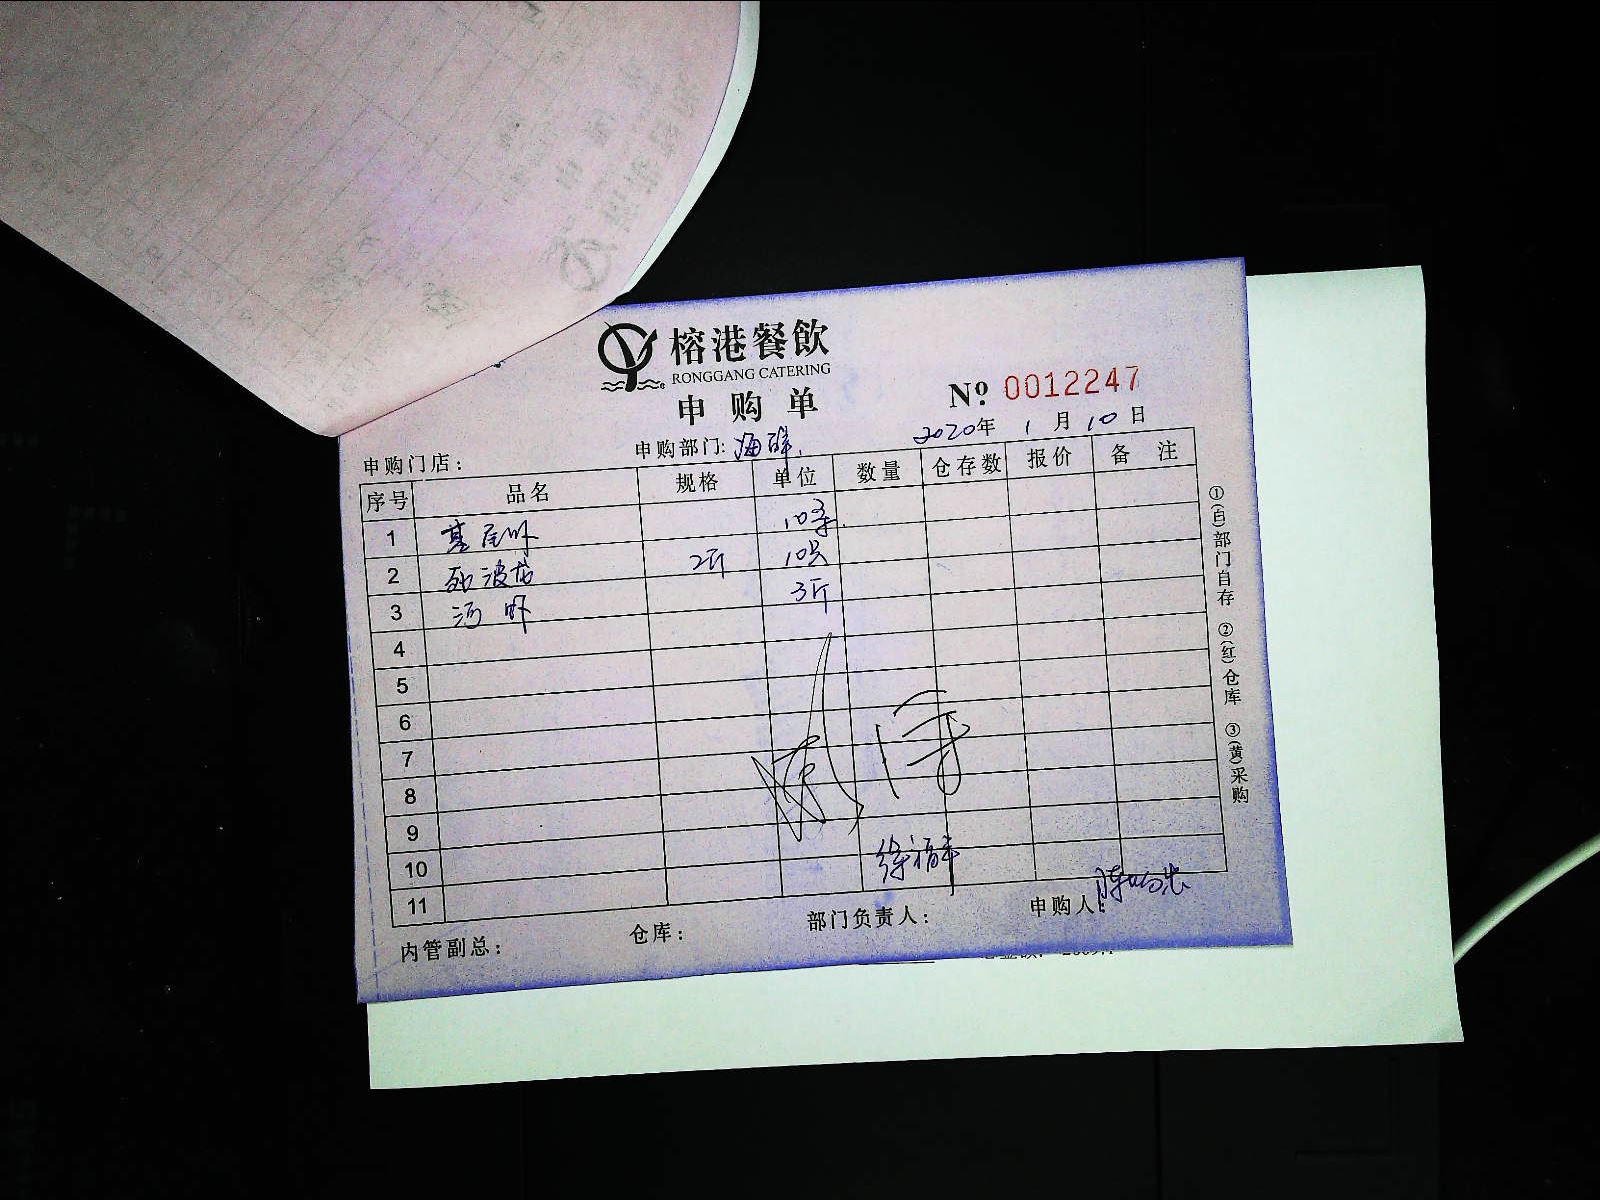 榕港餐飲
RONGGANG CATERING
申购单
Nº 0012247
申购门店：
申购部门: 海鲜
2020年 1月 10日
序号 品名 规格 单位 数量 仓存数 报价 备注
1 基尾虾 10条
2 死波龙 2斤 10只
3 河虾 3斤
4
5
6
7
8
9
10
11
徐福平
内管副总：
仓库：
部门负责人：
申购人：
①(白)部门自存 ②(红)仓库 ③(黄)采购